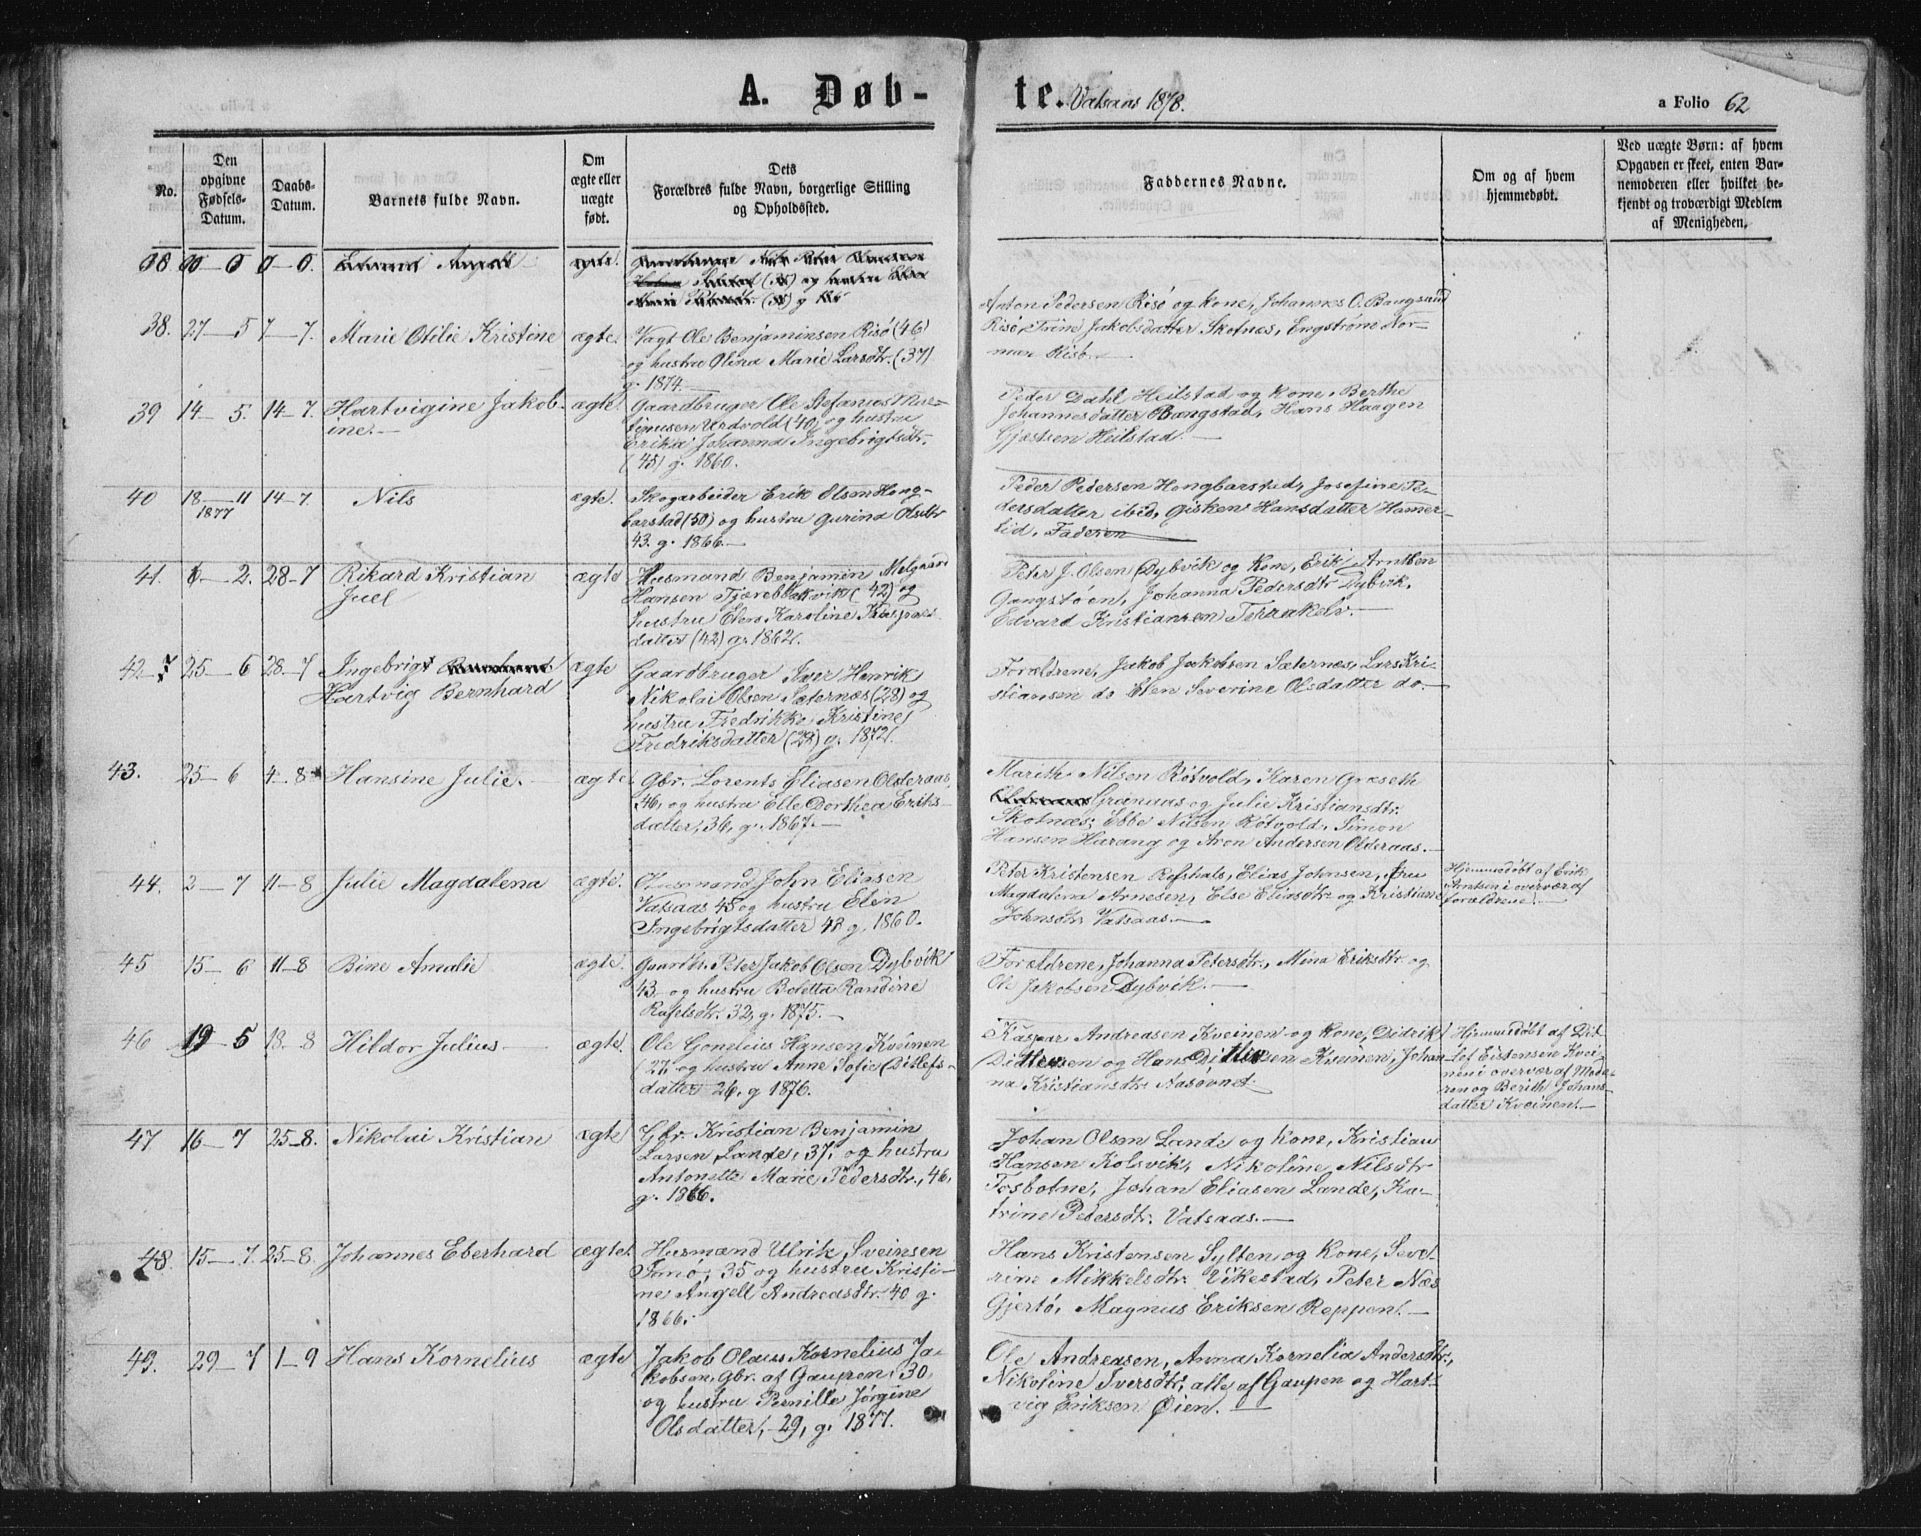 A. Døb-
te. Vatsaas 1878.
a Folio 62
No.
Den opgivne Fødsels-Datum.
Daabs-Datum.
Barnets fulde Navn.
Om ægte eller uægte født.
Dets Forældres fulde Navn, borgerlige Stilling og Opholdssted.
Faddernes Navne.
Om og af hvem hjemmedøbt.
Ved uægte Børn: af hvem Opgaven er skeet, enten Barnemoderen eller hvilket bekjendt og troværdigt Medlem af Menigheden.
38. 27–5 7–7. Marie Otilie Kristine ægte.
Vagt Ole Benjaminsen Risø (46)
og hustru Olina Marie Larsdtr. (37)
g. 1874.
Anton Pedersen Risø og kone, Johannes O. Bangsund
Risø, Trine Jakobsdatter Skotnes, Engstrøm Nor-
man Risø.
39 14–5. 14–7. Hartvigine Jakob-
ine.–
ægte.
Gaardbruger Ole Stefanus
Urdvold (40) og hustru
Erika Johanna Ingebrigtsdtr.
(45) g. 1860.
Peder Dahl Heilstad og kone, Berthe
Johannesdatter Bangstad, Hans Haagen
Gjæstsen Heilstad.–
40 18–11 1877 14–7 Nils ægte.
Skogarbeider Erik Olsen Hong-
barstad (50) og hustru Gurina Olsdtr
43. g. 1866.–
Peder Pedersen Hongbarstad, Josefine Pe-
dersdatter ibid, Gisken Hansdatter Hamer-
lid. Faderen
41. 6–2. 28–7 Rikard Kristian
Juel
ægte
Husmand Benjamin Melgaard
Hansen Tjærebbakvik (42) og
hustru Elen Karoline Kaspars-
datter (42) g. 1862.
Peter J. Olsen Dybvik og kone, Erik Arntsen
Gangstøen, Johanna Pedersdtr Dybvik,
Edvard Kristiansen Terraakelv.–
42 25–6 28–7 Ingebrigt
Hartvig Bernhard
ægte
Gaardbruger Iver Henrik
Nikolai Olsen Sæternæs (28) og
hustru Fredrikke Kristine
Fredriksdatter (29) g. 1872.
Forældrene, Jakob Jakobsen Sæternæs, Lars Kri-
stiansen do Elen Severine Olsdatter do.–
43. 25–6 4–8 Hansine Julie. ægte
Gbr. Lorents Eliasen Olderaas,
46, og hustru Elle Dorthea Eriks-
datter, 36, g. 1867.–
Marith Nilsen Røtvold, Karen Græseth
Granaas og Julie Kristiansdtr.
Skotnæs; Ebbe Nilsen Røtvold. Simon
Hansen Harang og Aron Andersen Olderaas.–
44. 2–7 11–8 Julie Magdalena ægte.
Husmand John Eliasen
Vatsaas 45 og hustru Elen
Ingebrigtsdatter 43 g. 1860.
Peter Kristensen Refshals, Elias Johnsen,
Magdalena Arnesen, Else Eliasdtr og Kristiane
Johnsdtr. Vatsaas.–
Hjemmedøbt af Erik
Arntsen i overvær af
forældrene.–
45 15–6 11–8 Bine Amalie ægte.
Gaardbr. Peter Jakob Olsen Dybvik
43 og hustru Beletta Randine
Rafelsdtr. 32, g. 1875.–
Forældrene, Johanna Petersdtr., Mina Eriksdtr og
Ole Jakobsen Dybvik.–
46 19–5 18–8 Hildor Julius ægte.
Ole Gomleius Hansen Kveinen
27, og hustru Anne Sofie Ditlefs-
datter 26, g 1876.
Kaspar Andreasen Kveinen og kone, Didrik
Ditlevsen og Hans Ditlevsen Kveinen, Johan-
na Kristiansdtr. Aasovnet.
Hjemmedøbt af Dit-
lef Eistensen Kvei-
nen i overvær af Mode-
ren og Berith Johans-
datter Kveinen.–
47 16–7 25–8. Nikolai Kristian ægte
Gbr. Kristian Benjamin
Larsen Lande, 37, og hustru
Antonette Marie Pedersdtr., 46,
g. 1866.
Johan Olsen Lande og kone, Kristian
Hansen Kolsvik, Nikoline Nilsdtr
Tosbotne, Johan Eliasen Lande, Ka-
trine Petersdtr. Vatsaas.–
48. 15–7. 25–8. Johannes Eberhard ægte.
Husmand Ulrik Sveinsen
35 og hustru Kristi-
ne Angell Andreasdtr. 40 g.
1866.
Hans Kristensen Sylten og kone, Seve-
rine Mikkelsdtr. Vikestad, Peter Næs
Gjertø, Magnus Eriksen Reppen.–
49. 29–7 1–9 Hans Kornelius ægte
Jakob Olaus Kornelius Ja-
kobsen, Gbr. af Gaupen, 30,
og hustru Pernille Jørgine
Olsdatter, 29, g. 1877.
Ole Andreasen, Anna Kornelia Andersdtr.,
Nikoline Iversdtr, alle af Gaupen og Hart-
vig Eriksen Øien.–